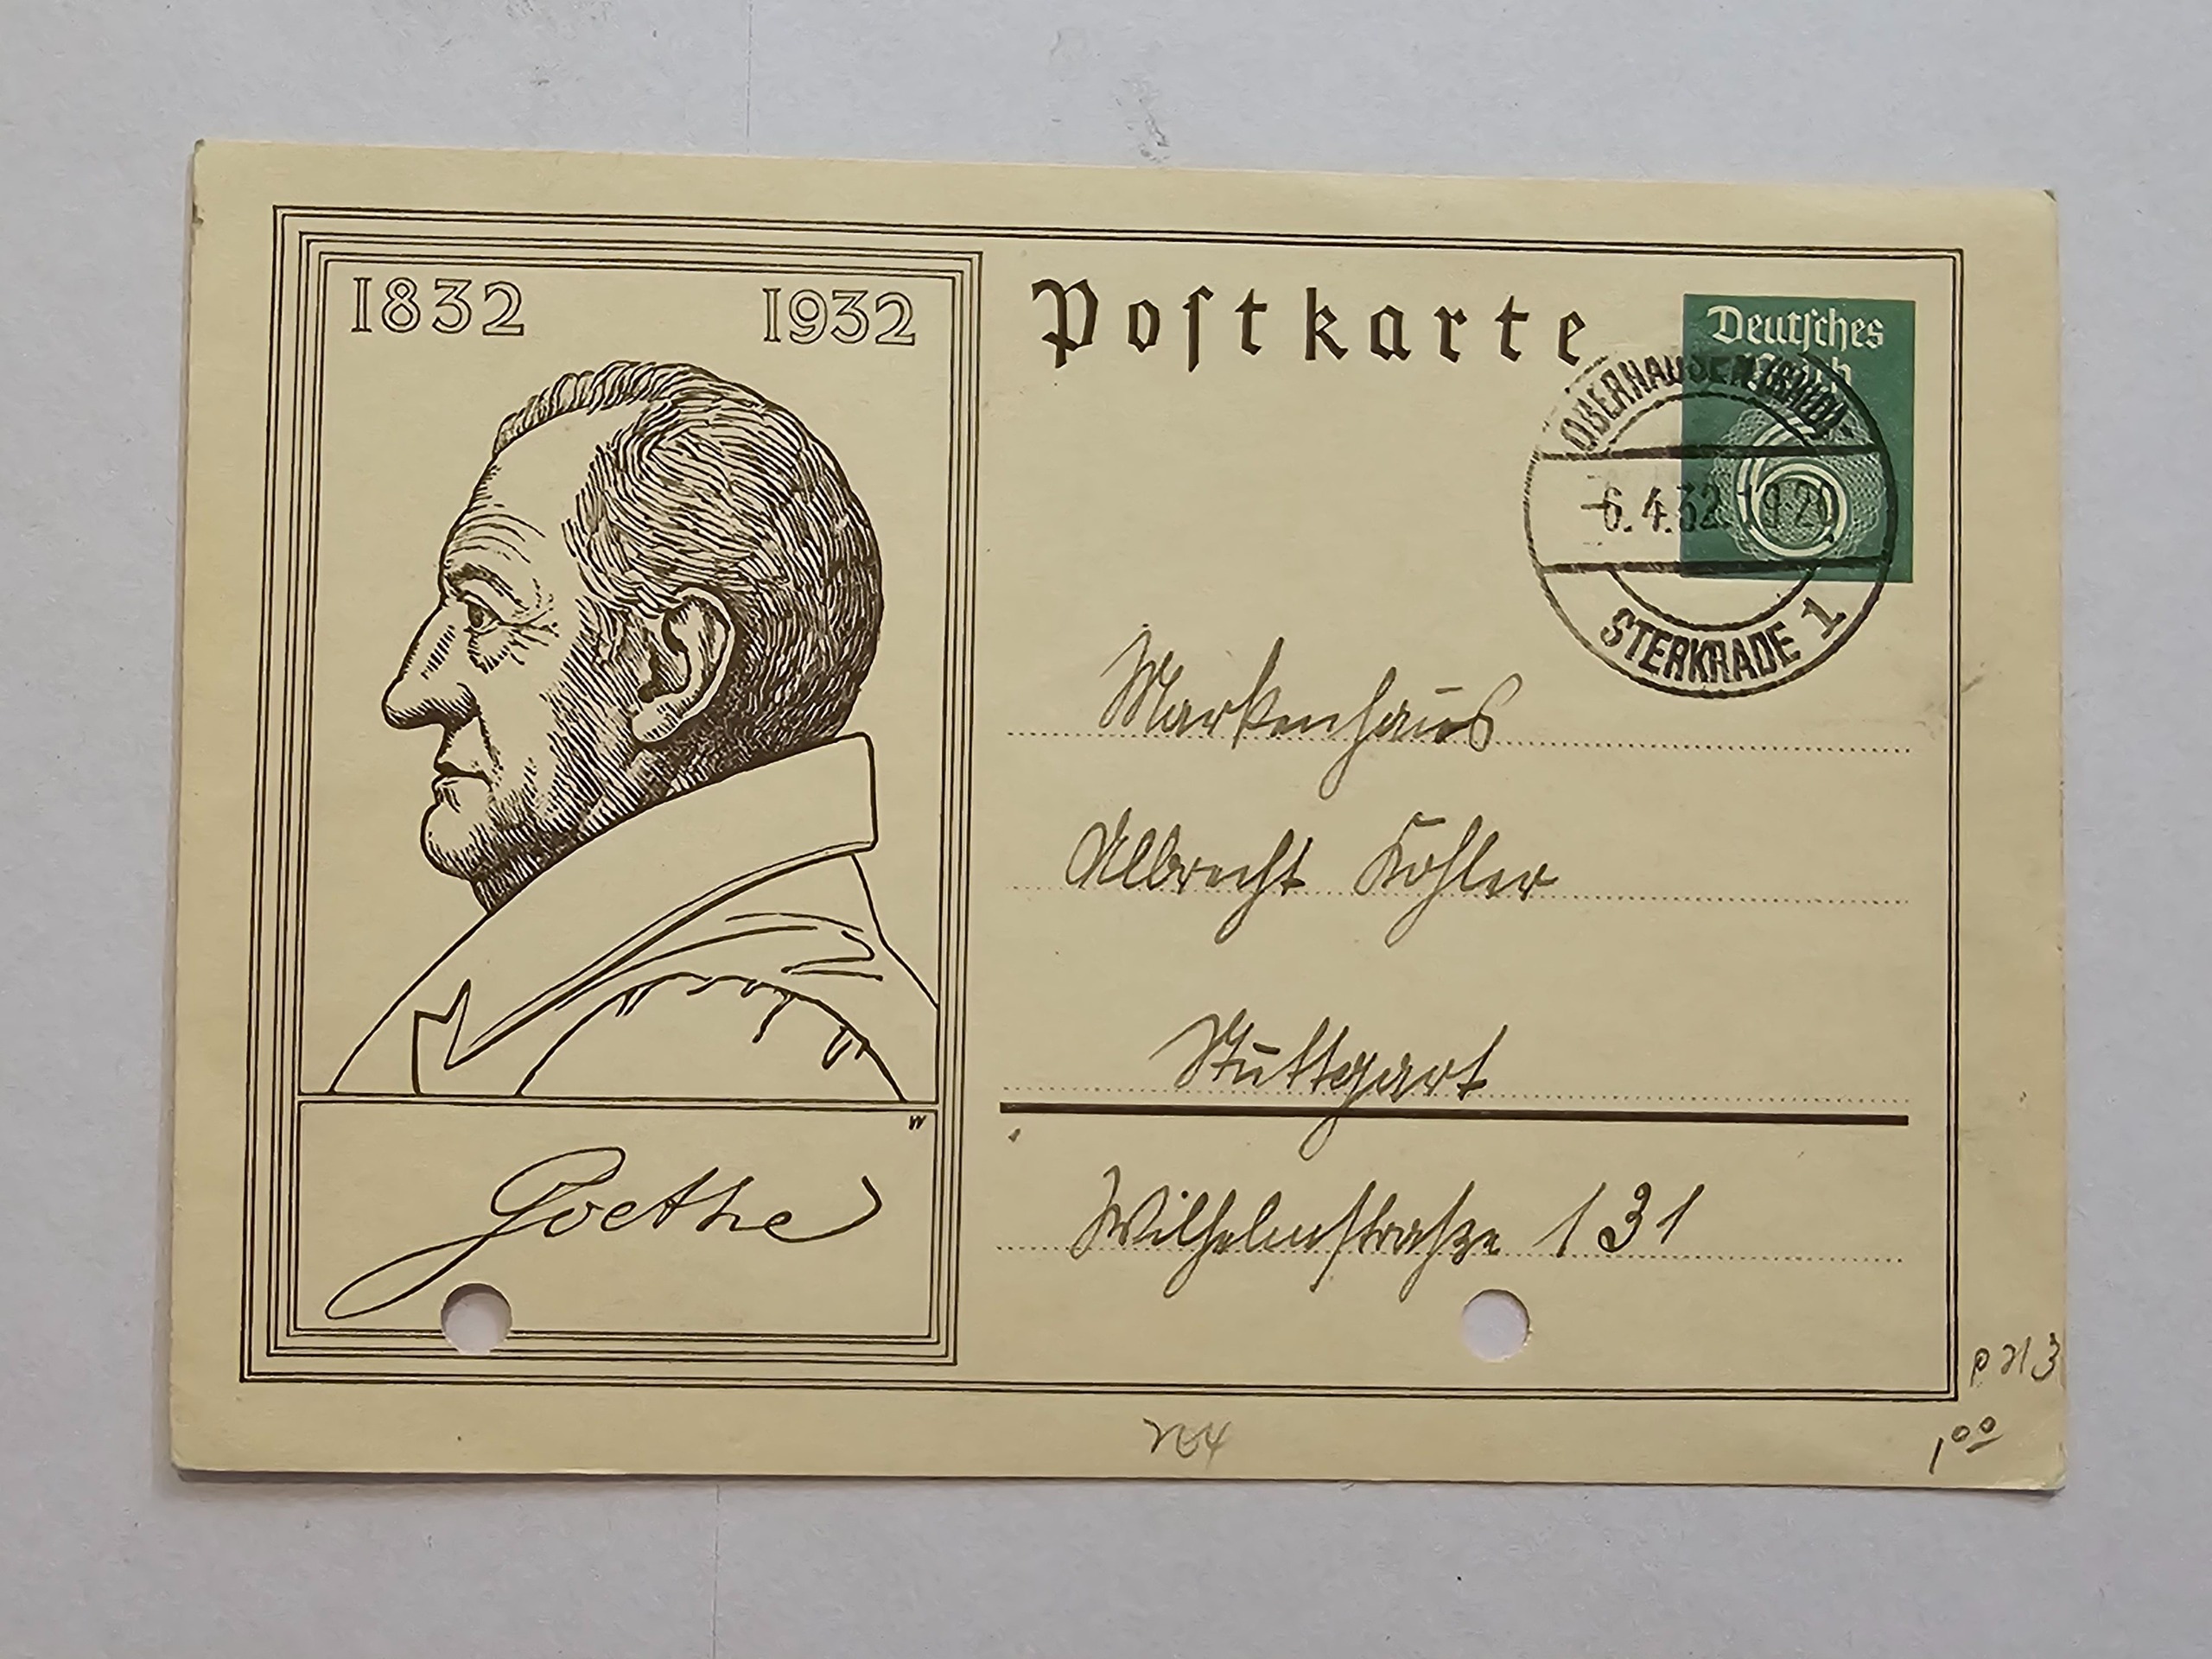 1832 1932
Postkarte
Deutsches
Reich
6
OBERHAUSEN
-6.4.32.19-20
STERKRADE 1
Markenhaus
Albrecht Köhler
Stuttgart
Wilhelmstraße 131
W
Goethe
P 213
1 00